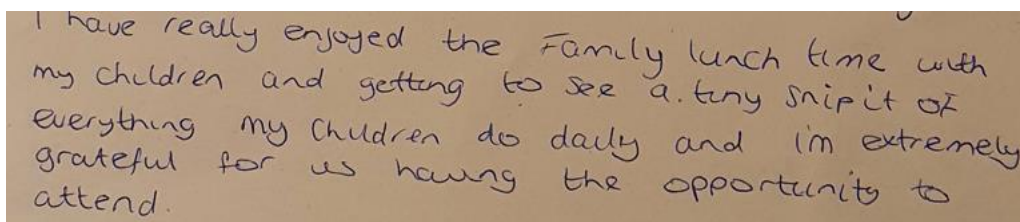 I have really enjoyed the Family lunch time with
my children and getting to see a. tiny snipit of
everything my children do daily and im extremely
grateful for us having the opportunity to
attend.